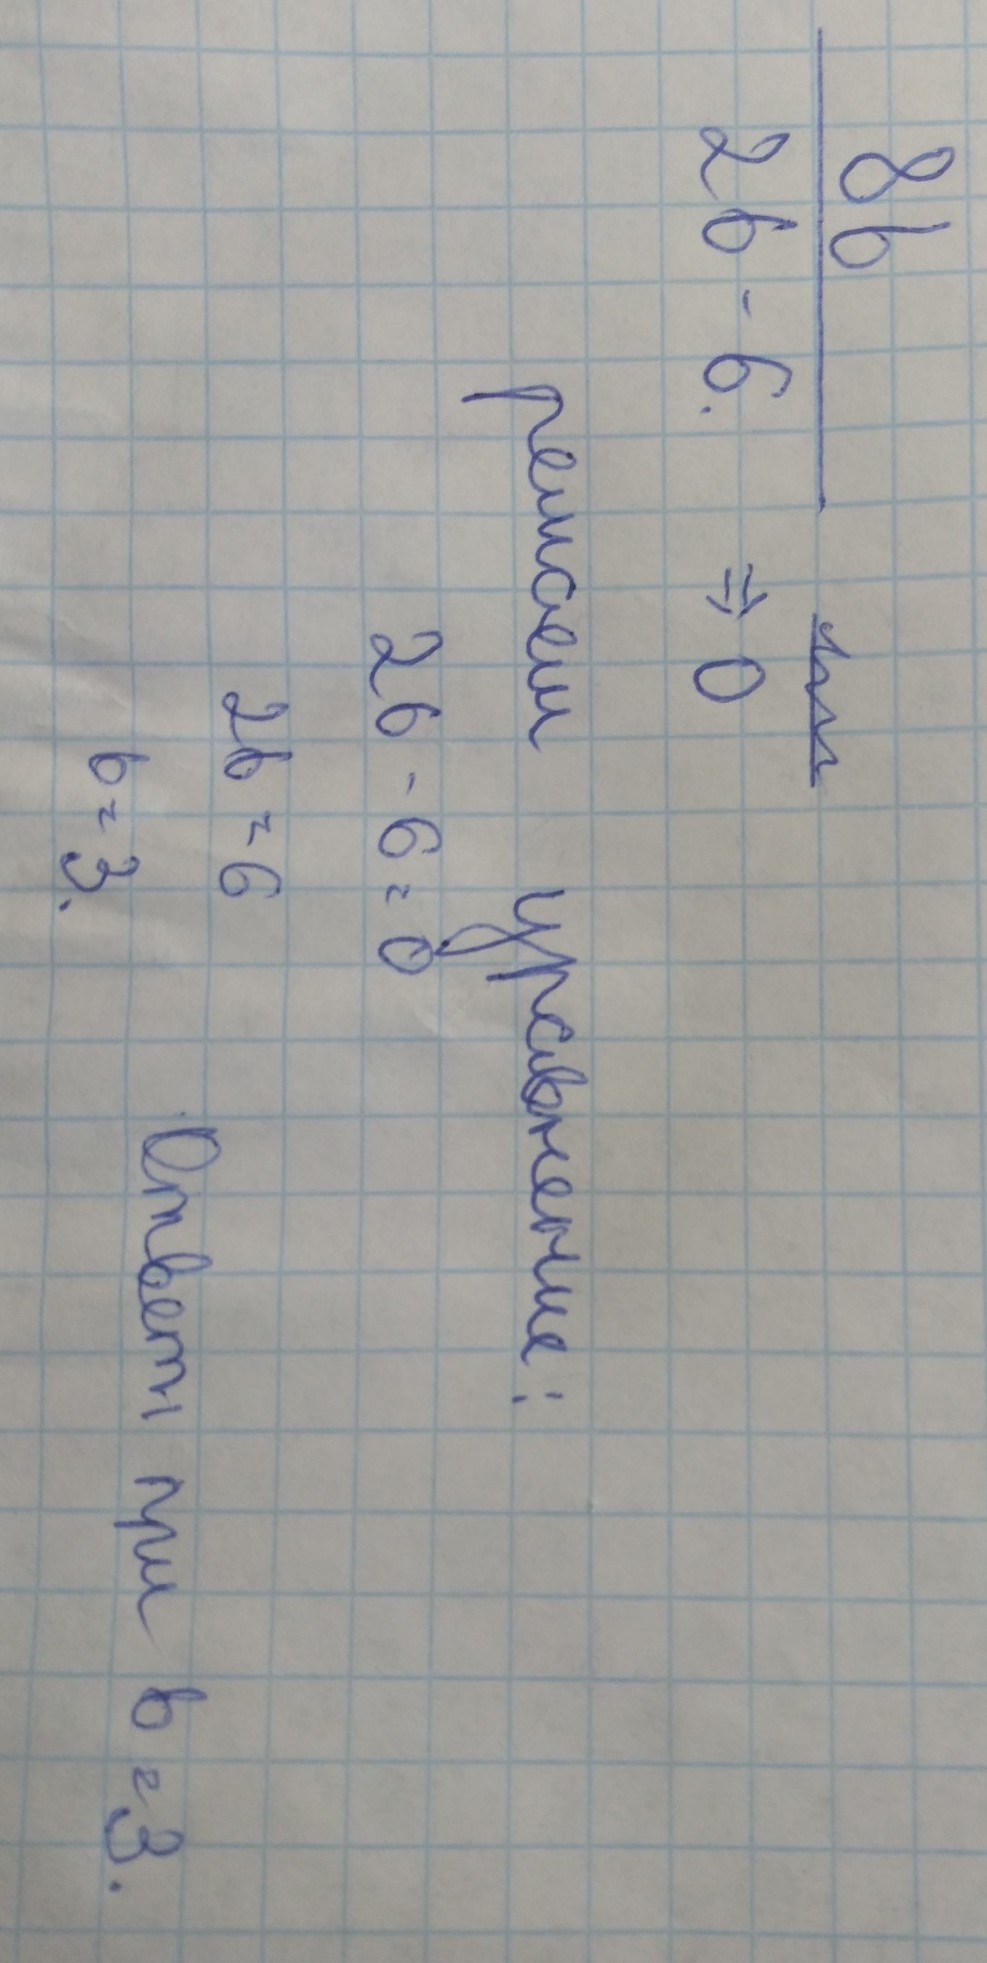 8b
2b - 6. ⇒ 0
решаем уравнение:
2b - 6 = 0
2b = 6
b = 3.
Ответ при b = 3.